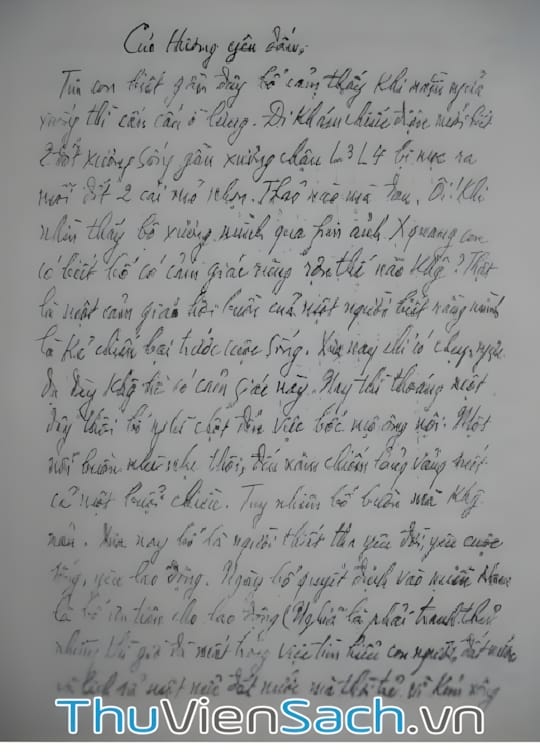 Cúc Hương yêu dấu,
Tin con biết gần đây bố cảm thấy khi nằm ngửa
xuống thì cấn cấn ở lưng. Đi khám chiếu điện mới biết
2 đốt xương sống gần xương chậu L3 L4 bị mọc ra
mỗi đốt 2 cái mỏ nhọn. Thảo nào mà đau. Ôi! Khi
nhìn thấy bộ xương mình qua phim ảnh X quang con
có biết bố có cảm giác rùng rợn thế nào khg? Thật
là một cảm giác hơi buồn của một người biết rằng mình
là kẻ chiến bại trước cuộc sống. Xưa nay chỉ có
khg hề có cảm giác này. Nay thì thoáng một
đây thôi bố nghĩ chợt đến việc bốc mộ ông nội. Một
nỗi buồn nhè nhẹ thôi, đến xâm chiếm lảng vảng mất
cả một buổi chiều. Tuy nhiên bố buồn mà khg
nản. Xưa nay bố là người thiết tha yêu đời, yêu cuộc
sống, yêu lao động. Ngày bố quyết định vào miền Nam
là bố ưu tiên cho lao động (Nghĩa là phải tranh thủ
những thì giờ đã mất trong việc tìm hiểu con người, đất nước
và lịch sử một nửa đất nước mà thời trẻ
ThuVienSach.vn